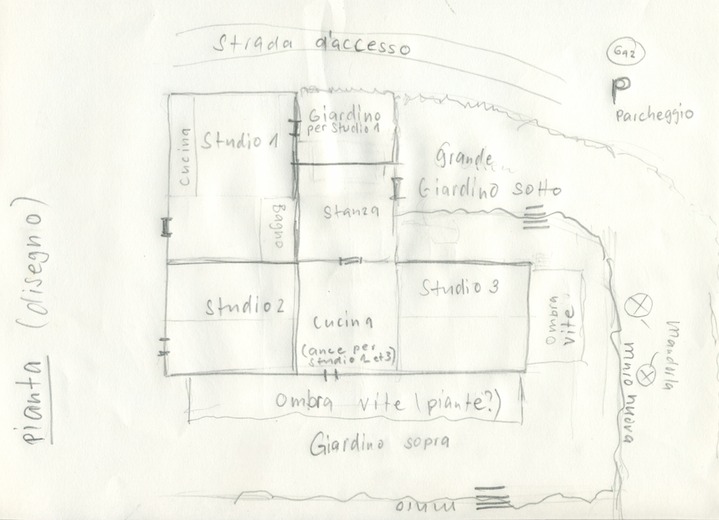 Strada d'accesso
Gaz
P
Parcheggio
Giardino
per Studio 1
Studio 1
cucina
Grande
Giardino sotto
Stanza
Bagno
pianta (disegno)
Studio 2
Studio 3
cucina
(ance per
studio 2 et 3)
ombra
vite
Mandorla
muro nuova
ombra vite (piante?)
Giardino sopra
muro